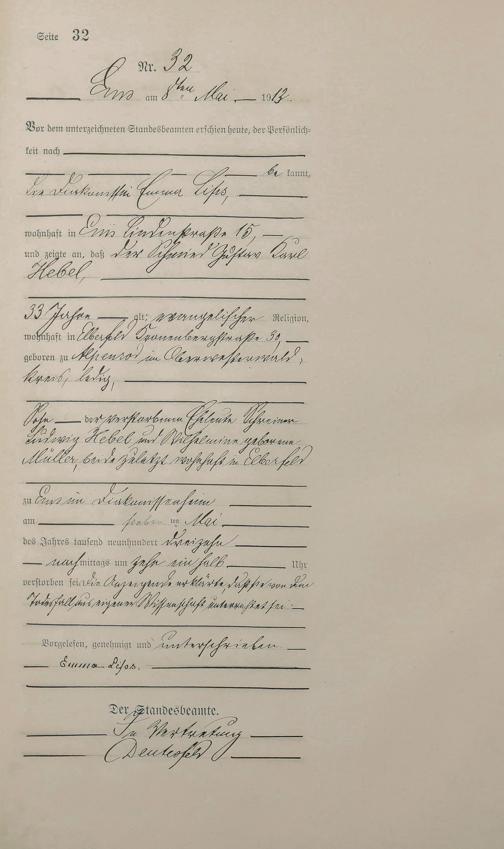 Seite 32
Nr. 32
Ems am 8ten Mai 1913.
Vor dem unterzeichneten Standesbeamten erschien heute, der Persönlich-
keit nach
be kannt,
die Diakonissin Emma Lips,
wohnhaft in Ems Lindenstraße 15,
und zeigte an, daß der Schmied Gustav Karl
Hebel,
33 Jahre alt, evangelischer Religion,
wohnhaft in Elberfeld Kronenbergstraße 30,
geboren zu Alpenrod im Oberwesterwald-
kreis, ledig,
Sohn der verstorbenen Eheleute Schreiner
Ludwig Hebel und Wilhelmine geborene
Müller, beide zuletzt wohnhaft in Elberfeld
zu Ems im Diakonissenheim
am Mai
des Jahres tausend neunhundert dreizehn
nachmittags um zehn ein halb Uhr
verstorben sei; die Anzeigende erklärte, daß sie von dem
Todesfall aus eigener Wissenschaft unterrichtet sei.
Vorgelesen, genehmigt und unterschrieben
Emma Lips.
Der Standesbeamte.
In Vertretung